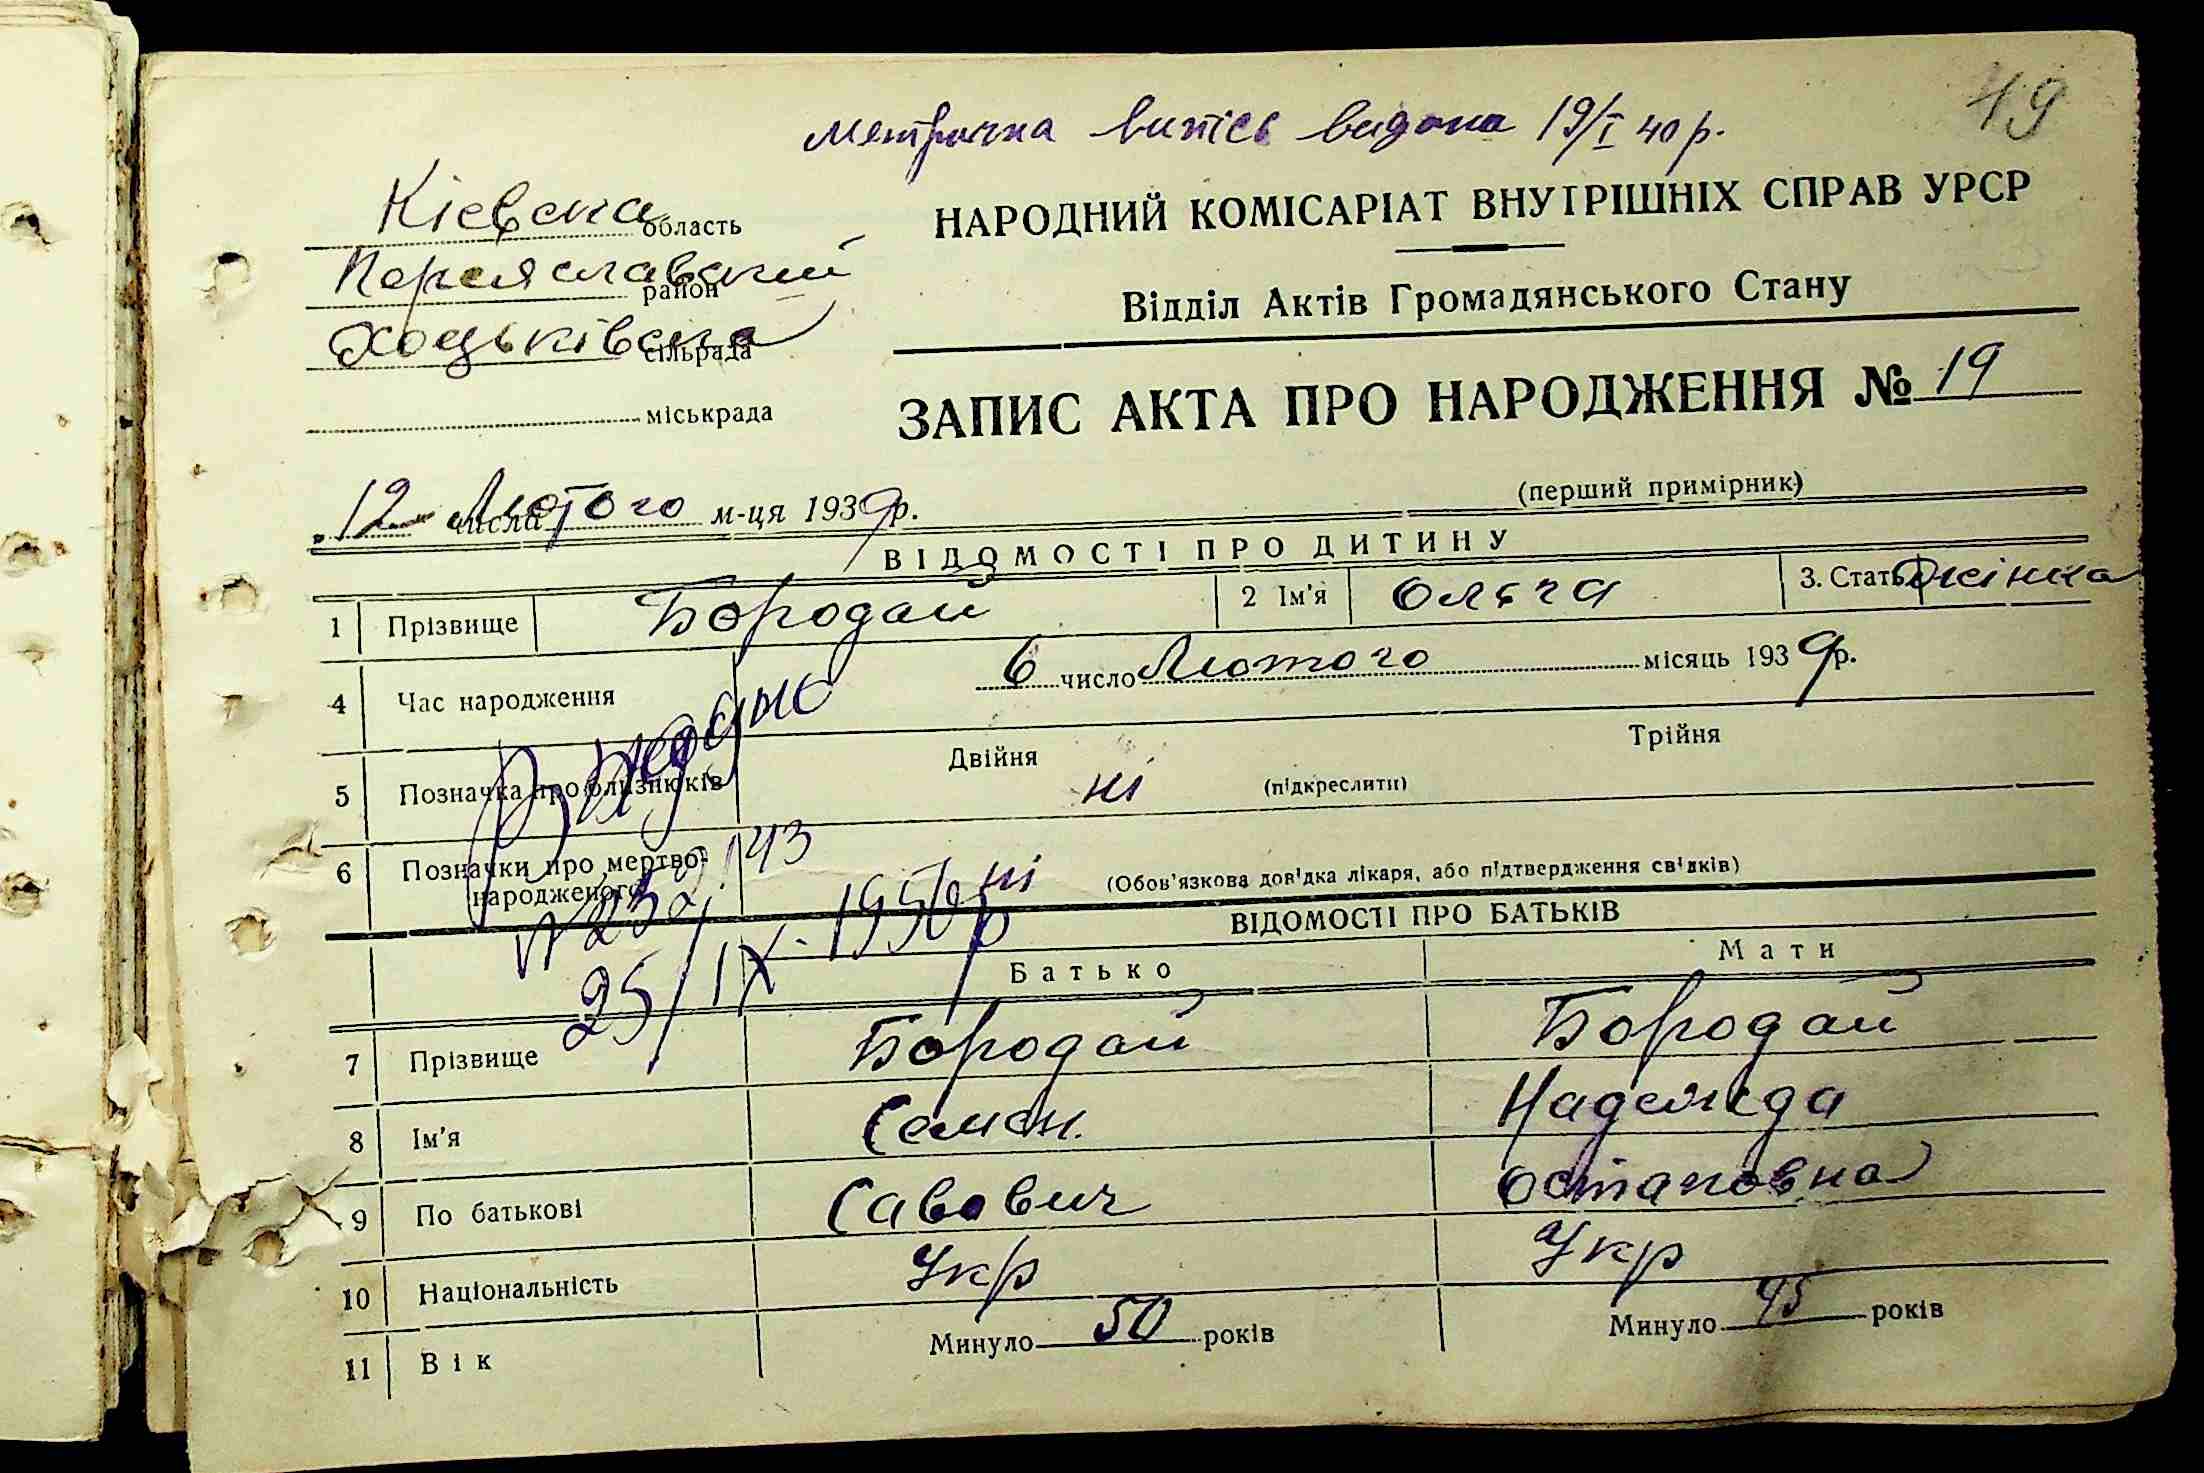 49
Метрична випісь видана 19/I 40 р.
Кієвска область
НАРОДНИЙ КОМІСАРІАТ ВНУТРІШНІХ СПРАВ УРСР
Переяславский район
Відділ Актів Громадянського Стану
Хоцьківска сільрада
міськрада
ЗАПИС АКТА ПРО НАРОДЖЕННЯ № 19
(перший примірник)
12 числа Лютого м-ця 1939р.
ВІДОМОСТІ ПРО ДИТИНУ
1 Прізвище Бородай 2 Ім'я Ольга 3. Стать жінка
4 Час народження 6 число Лютого місяць 1939р.
5 Позначка про близнюків Двійня ні (підкреслити) Трійня
6 Позначки про мертво-
народженого ні (Обов'язкова довідка лікаря, або підтвердження свідків)
25/IX-1956р
ВІДОМОСТІ ПРО БАТЬКІВ
Батько Мати
7 Прізвище Бородай Бородай
8 Ім'я Семен. Надежда
9 По батькові Савович Остаповна
10 Національність Укр Укр
11 Вік Минуло 50 років Минуло 45 років